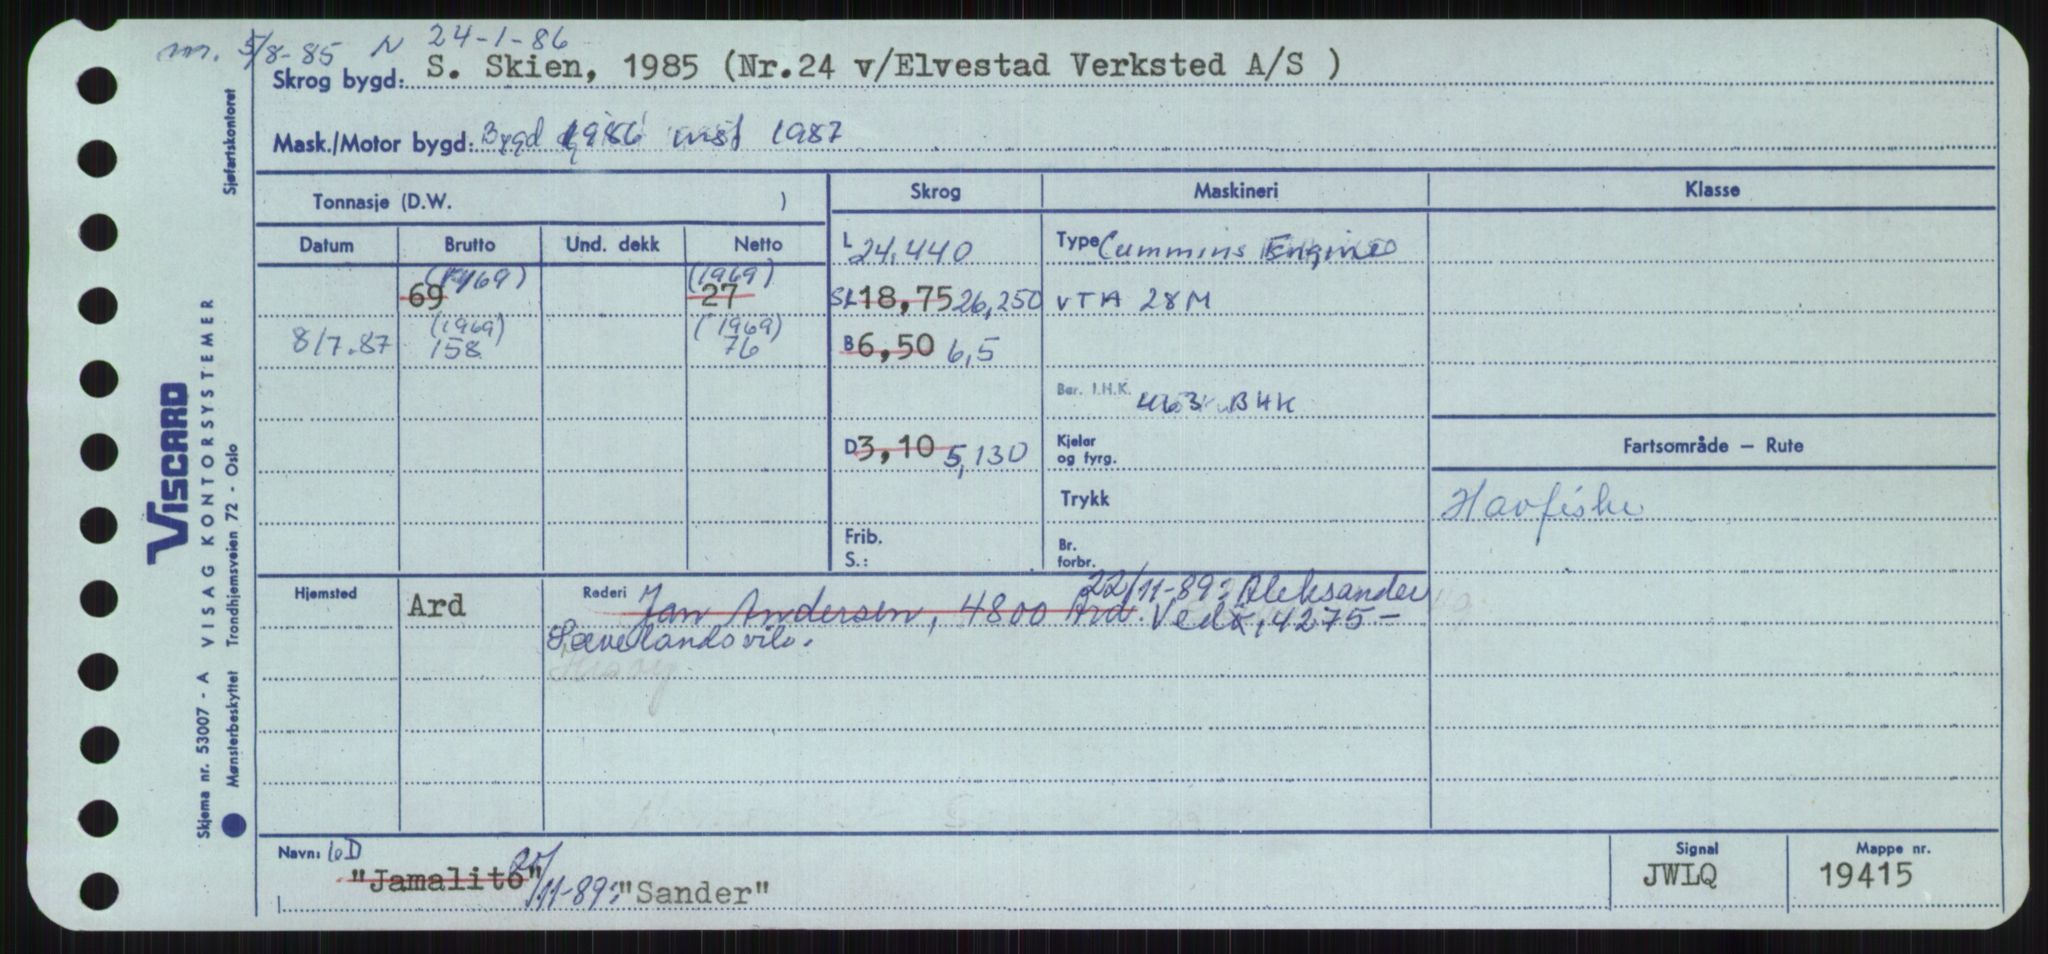 nr. 5/8-85 N 24-1-86
Skrog bygd: S. Skien, 1985 (Nr.24 v/Elvestad Verksted A/S )
Mask./Motor bygd: Bygd 1986 inst 1987
Tonnasje (D.W. )
Skrog Maskineri Klasse
Datum Brutto Und. dekk Netto
L 24,440 Type Cummins Engine
(1969) (1969)
69 27 SL 18,75 26,250 VTA 28M
8/7.87 (1969) 158 (1969) 76 B 6,50 6,5
Ber. I.H.K. 463 BHK
D 3,10 5,130 Kjelar og fyrg.
Fartsområde — Rute
Trykk
Havfiske
Frib.
S.:
Br. forbr.
Hjemsted Ard
Rederi Jan Andersen, 4800 Ard. 22/11-89: Aleksander
Vedø, 4275 –
Sævelandsvik.
Navn: LD
"Jamalito" 25/11-89: "Sander"
Signal
JWLQ
Mappe nr.
19415
Sjøfartskontoret
VISCARD
VISAG KONTORSYSTEMER
Skjema nr. 53007 - A
Mønsterbeskyttet Trondhjemsveien 72 - Oslo